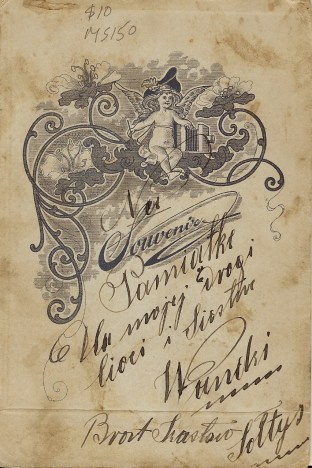 $10
MS150
Na
Souvenir
Pamiatke
Dla mojej Drogi
Cioci i Siostre
Wandzi
Brost
Soltys